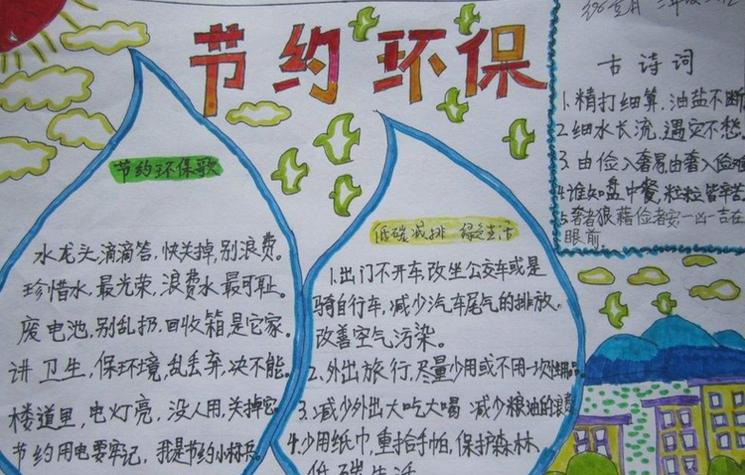 节约环保
节约环保歌
水龙头,滴滴答,快关掉,别浪费。
珍惜水,最光荣,浪费水,最可耻。
废电池,别乱扔,回收箱,是它家。
讲卫生,保环境,乱丢弃,决不能。
楼道里,电灯亮,没人用,关掉它
节约用电要牢记,我是节约小标兵。
低碳减排 绿色生活
1.出门不开车,改坐公交车或是
骑自行车,减少汽车尾气的排放,
改善空气污染。
2.外出旅行,尽量少用或不用一次性用品。
3.减少外出大吃大喝 减少粮油的浪费
4.少用纸巾,重拾手帕,保护森林
低碳生活
古诗词
1.精打细算,油盐不断
2.细水长流,遇灾不愁
3.由俭入奢易由奢入俭难
4.谁知盘中餐,粒粒皆辛苦
5.奢者狼藉俭者安一凶一吉在
眼前。